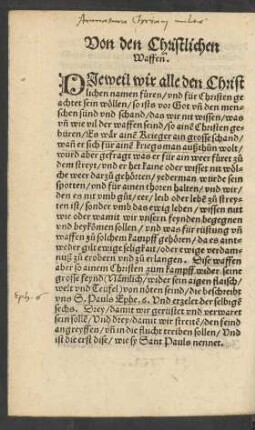 Armatura Christiani militis
Von den Christlichen
Waffen.
DJeweil wir alle den Christ
lichen namen füren/vnd für Christen ge
achtet sein wöllen/so ists vor Got vñ den men
schen sünd vnd schand/das wir nit wissen/was
vñ wie vil der waffen seind/so ainē Christen ge
büren/Es wär ainē Krieger ain grosse schand/
wañ er sich für ainē kriegsman außthün wolt/
würd aber gefragt was er für ain weer füret zů
dem streyt/vnd er het kaine oder wisset nit wöl-
che weer dar zů gehörten/yederman würde sein
spotten/vnd für ainen thoren halten/vnd wir/
den es nit vmb gůt/eer/leib oder lebē zů strey-
ten ist/sonder vmb das ewig leben/wissen nit
wie oder wamit wir vnsern feynden begegnen
vnd beykömen sollen/vnd was für rüstung vñ
waffen zů solchem kampff gehörn/da es ant-
weder gilt ewige seligkait/oder ewige verdam-
nuß zů erobern vnd zů erlangen. Dise waffen
aber so ainem Christen zum kampff wider seine
grosse feynd (Nämlich/wider sein aigen flaisch/
welt vnd Teufel) von nöten seind/die beschreibt
Eph. 6
vns S. Pauls Ephe. 6. Vnd erzelet der selbigē
sechs. Drey/damit wir gerüstet vnd verwaret
sein sollē/Vnd drey/damit wir streitē/den feind
angreyffen/vñ in die flucht treiben sollen/Vnd
ist die erst dise/wie sy Sant Pauls nennet.